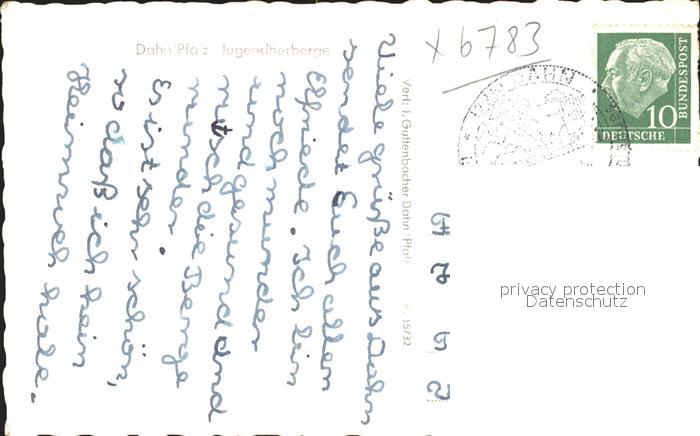 Dahn/Pfalz Jugendherberge
x 6783
BUNDESPOST
10
DEUTSCHE
DAHN
Verl: J. Guttenbacher Dahn/Pfalz
15732
Viele Grüße aus Dahn
sendet Euch allen
Elfriede. Ich bin
noch munter
und gesund und
die Berge
munter.
Es ist sehr schön,
so daß ich kein
Heimweh habe.
privacy protection
Datenschutz